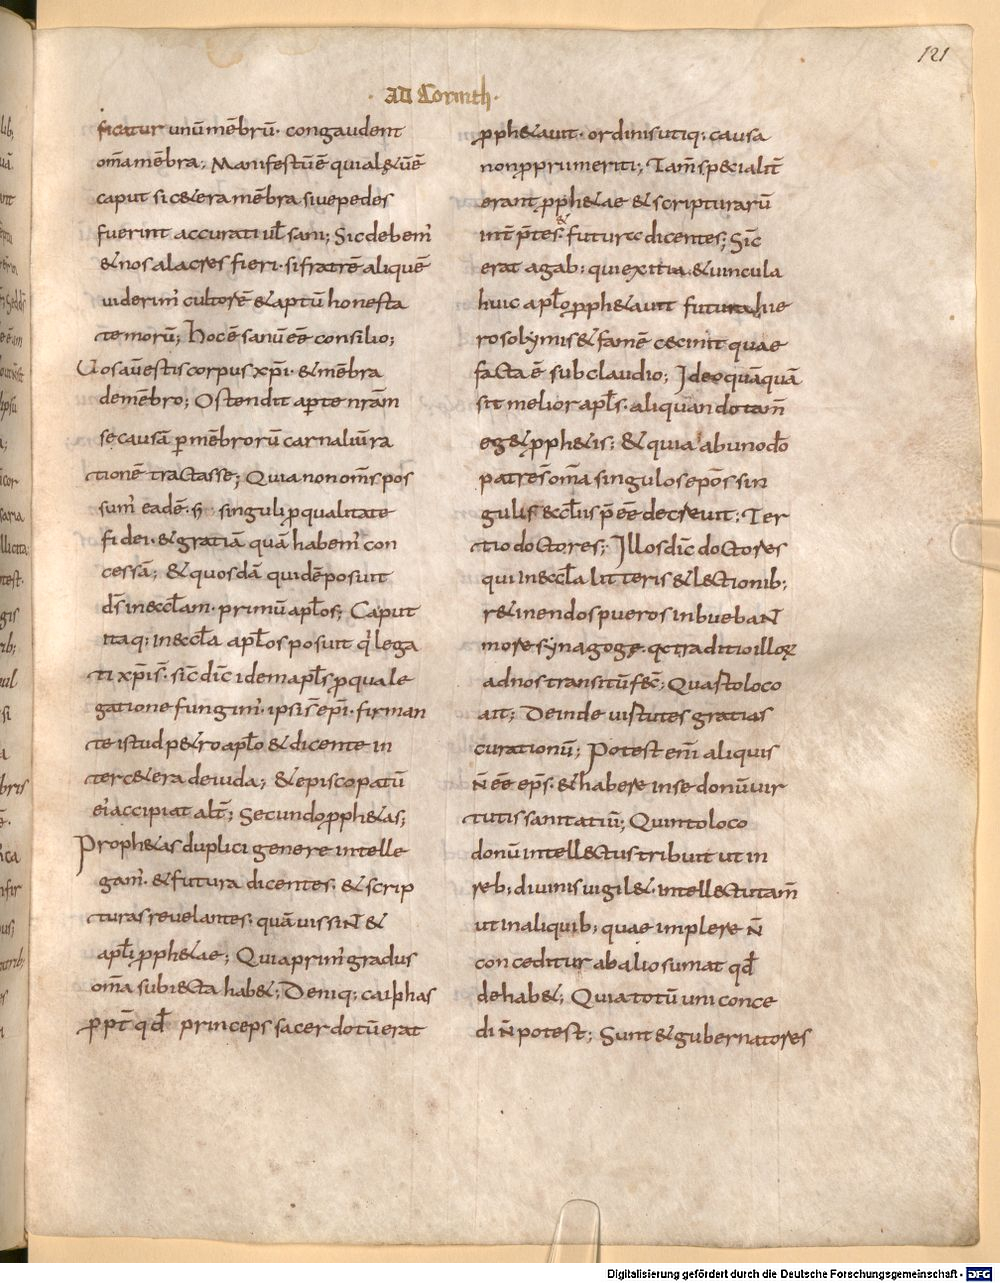 121
AD Corinth.
ficatur unū mēbrū. congaudent
om̄a mēbra; Manifestū ē quia l&ų ē
caput si c&era mēbra siue pedes
fuerint accurati ul̄ sani; Sic debem'
& nos alacres fieri. si fratrē aliquē
uiderim' cultorē & aptū honesta
te morū; Hoc ē sanū eē consilio;
Uos aū estis corpus xp̄i. & mēbra
de mēbro; Ostendit aꝑte nr̄am
se causā ꝑ mēbrorū carnaliū ra
tionē tractasse; Quia non om̄s pos
sum' eadē. s; singuli ꝓ qualitate
fidei. & gratiā quā habem' con
cessā; & quosdā quidē posuit
d̄s in eccl̄am. primū apl̄os; Caput
itaq; in eccl̄a apl̄os posuit q' lega
ti xp̄i s̄. sic̄ dic̄ idem apl̄s ꝓ qua le
gatione fungim'. ipsi s̄ ep̄i. firman
te istud p&ro apl̄o & dicente in
ter c&era de iuda; & episcopatū
ei' accipiat alt̄; Secundo ꝓph&as;
Proph&as duplici genere intelle
gam'. & futura dicentes. & scrip
turas reuelantes. quāuis siNt &
apl̄i ꝓph&ae; Quia prim' gradus
om̄a subiecta hab&; Deniq; caiphas
ꝓpt̄ qđ princeps sacerdotū erat
ꝓph&auit. ordinis utiq; causa
non ꝓprii meriti; Tam̄ specialit̄
erant ꝓph&ae & scripturarū
int̄p̄tes. & futura dicentes; Sic̄
erat agab; qui exitia & uincula
huic apl̄o ꝓph&auit futura hie
rosolymis & famē cecinit quae
facta ē sub claudio; Ideo quāquā
sit melior apl̄s. aliquando tam̄
eg& ꝓph&is; & quia ab uno dō
patre s̄ om̄a singulos ep̄os sin
gulis eccl̄iis p̄eē decreuit; Ter
tio doctores; Illos dic̄ doctores
qui in eccl̄a litteris & lectionib;
r&inendos pueros inbuebaNt
more synagoge q̨ traditio illoꝝ
ad nos transitū fec̄; Quarto loco
ait; Deinde uirtutes gratias
curationū; Potest eni aliquis
n̄ eē ep̄s. & habere in se donū uir
tutis sanitatiū; Quinto loco
donū intellectus tribuit ut in
reb; diuinis uigil&. intellectu tam̄
ut in aliquib; quae implere n̄
conceditur ab alio sumat qđ
de hab&; Quia totū uni conce
di n̄ potest; Sunt & gubernatores
Digitalisierung gefördert durch die Deutsche Forschungsgemeinschaft - DFG